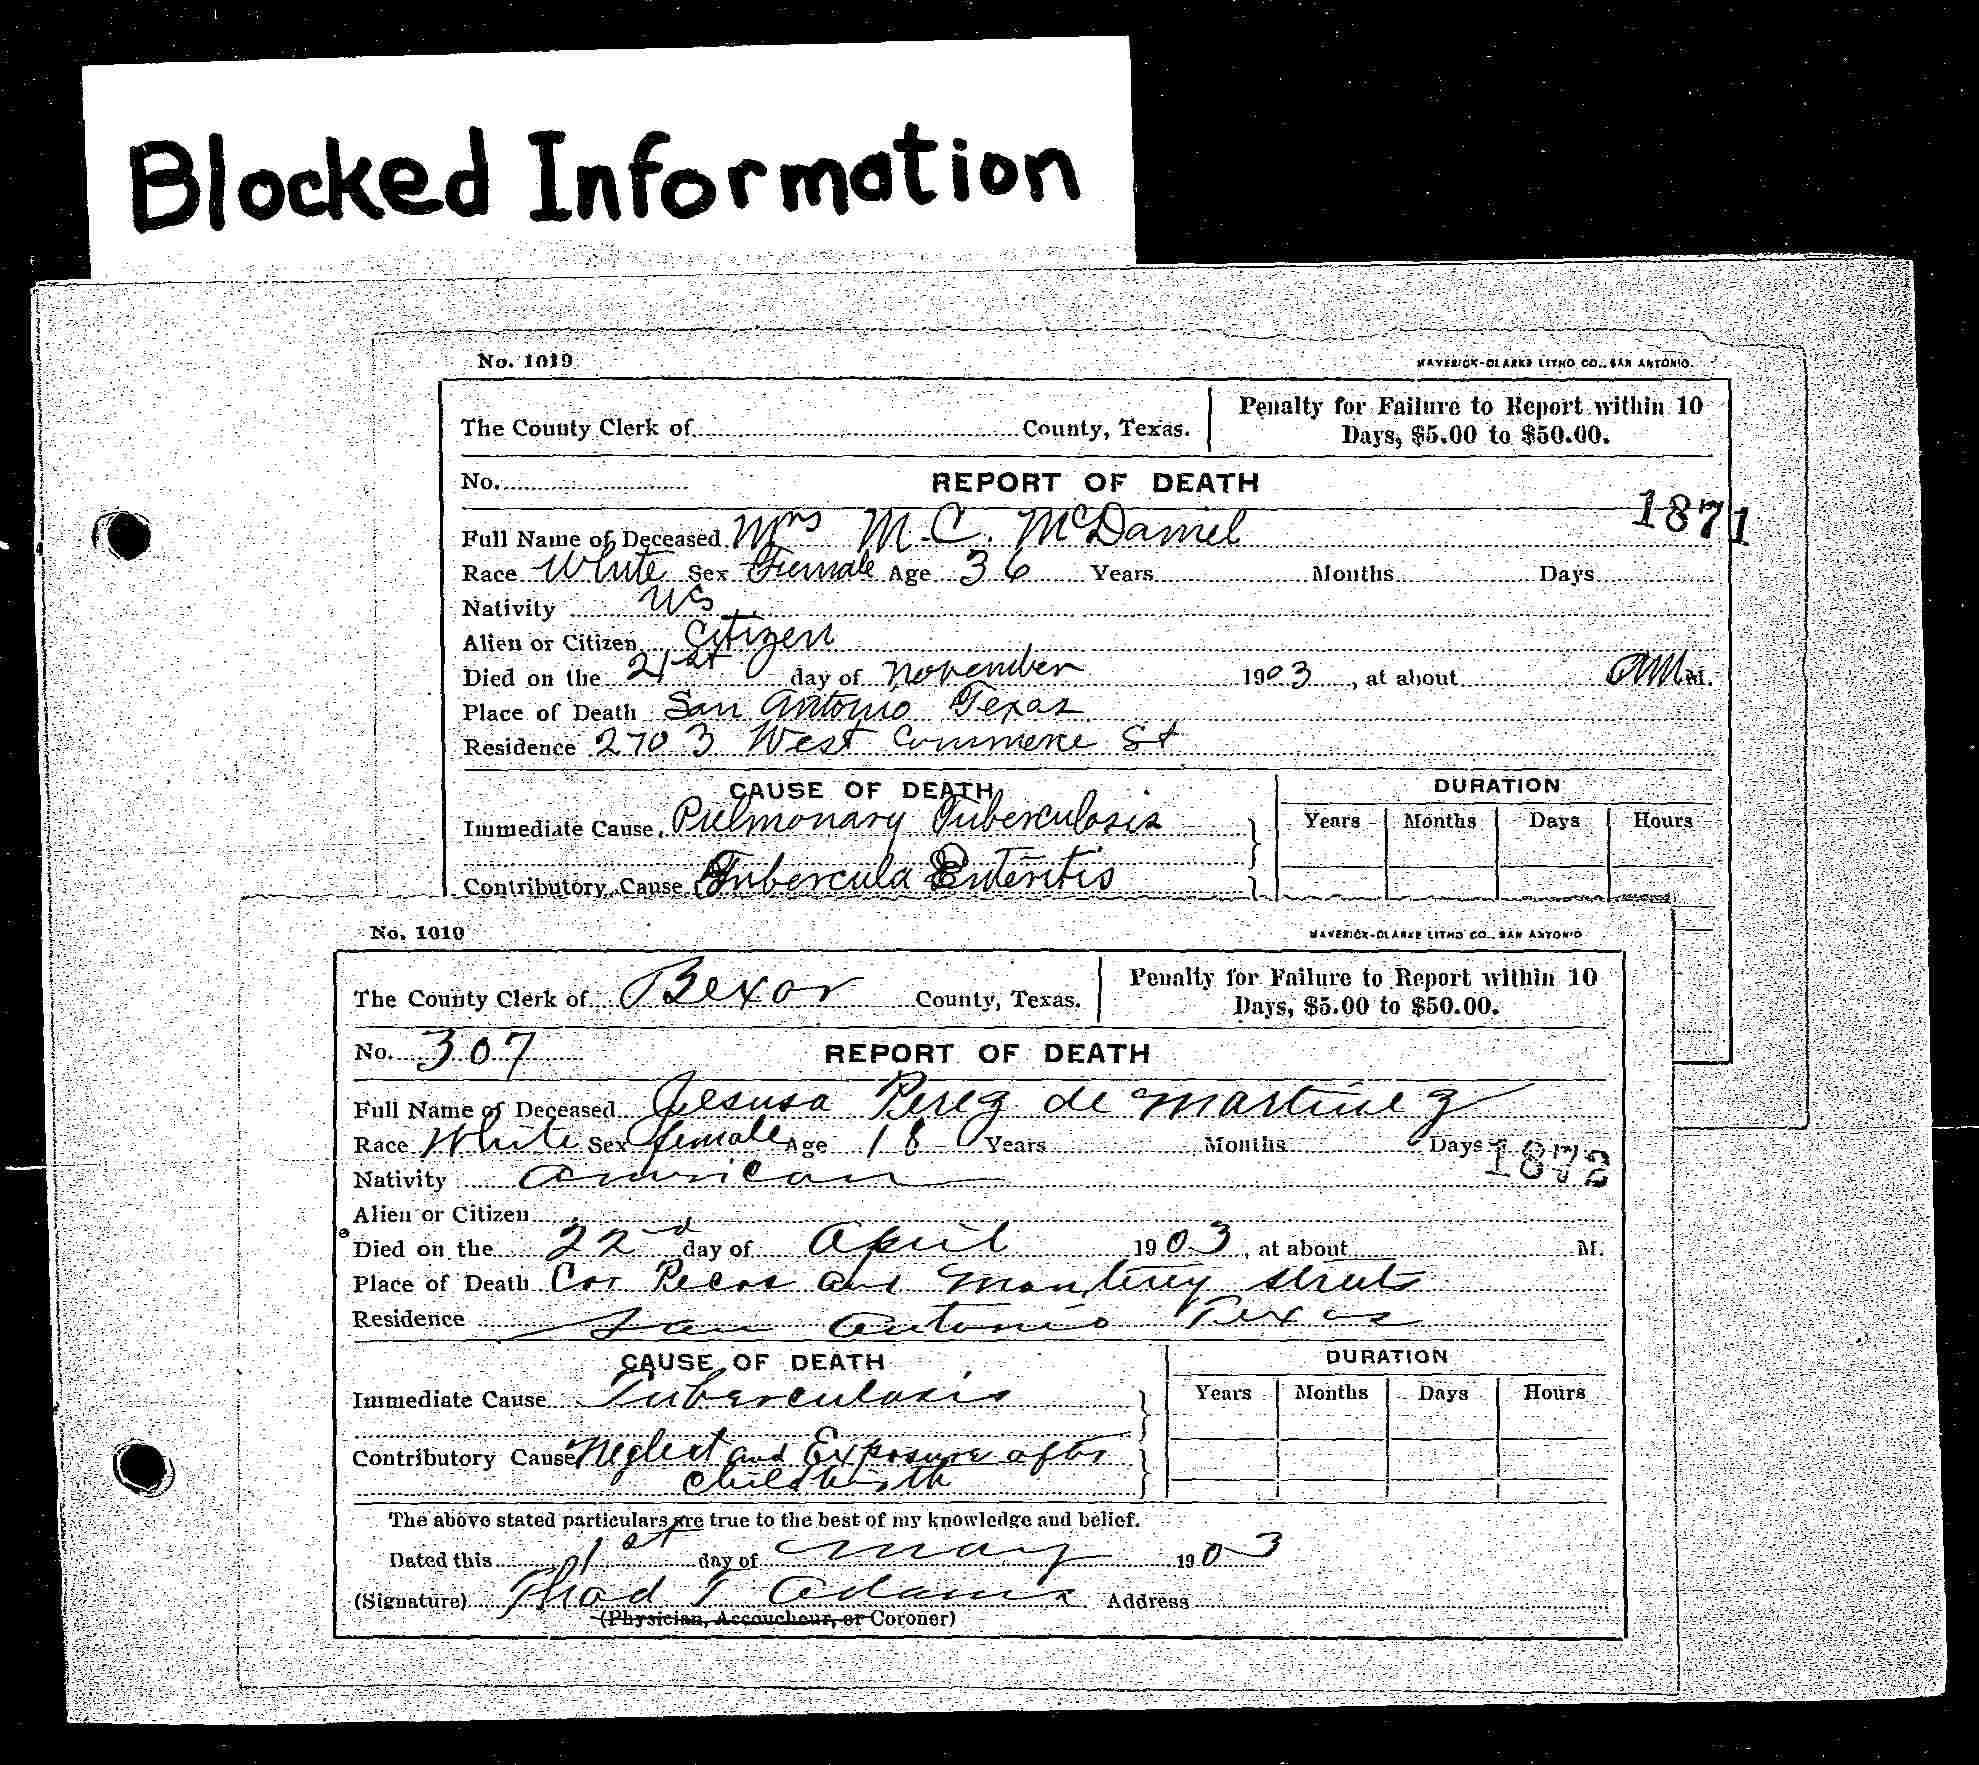 Blocked Information
No. 1019 MAVERICK-CLARKE LITHO CO., SAN ANTONIO.
The County Clerk of County, Texas. Penalty for Failure to Report within 10
Days, $5.00 to $50.00.
No. REPORT OF DEATH
1871
Full Name of Deceased Mrs M. C. McDaniel
Race White Sex Female Age 36 Years Months Days
Nativity US
Alien or Citizen Citizen
Died on the 21st day of November 1903, at about M.
Place of Death San Antonio Texas
Residence 2703 West Commerce St
CAUSE OF DEATH DURATION
Immediate Cause Pulmonary Tuberculosis Years Months Days Hours
Contributory Cause Tubercula Enteritis
No. 1019 MAVERICK-CLARKE LITHO CO., SAN ANTONIO
The County Clerk of Bexar County, Texas. Penalty for Failure to Report within 10
Days, $5.00 to $50.00.
No. 307 REPORT OF DEATH
Full Name of Deceased Jesusa Perez de Martinez
Race White Sex female Age 18 Years Months Days
1872
Nativity American
Alien or Citizen
Died on the 22nd day of April 1903, at about M.
Place of Death Cor Pecos and Monterey streets
Residence San Antonio Texas
CAUSE OF DEATH DURATION
Immediate Cause Tuberculosis Years Months Days Hours
Contributory Cause Neglect and Exposure after
childbirth
The above stated particulars are true to the best of my knowledge and belief.
Dated this 1st day of May 1903
(Signature) Thad T Adams Address
(Physician, Accoucheur, or Coroner)